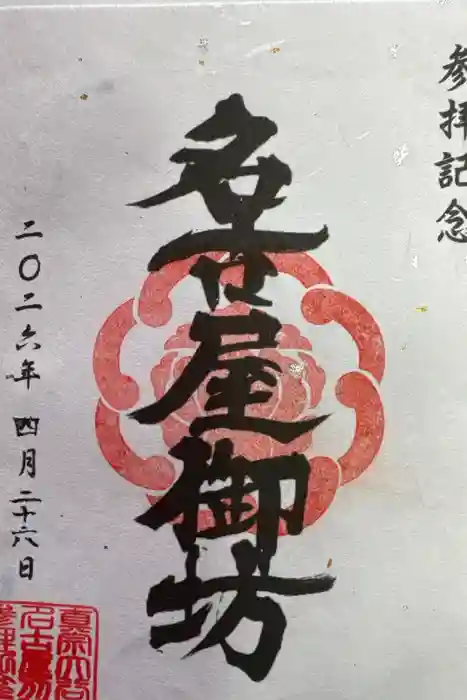 参拝記念
名古屋御坊
二〇二六年 四月二十六日
真宗大谷
名古屋別